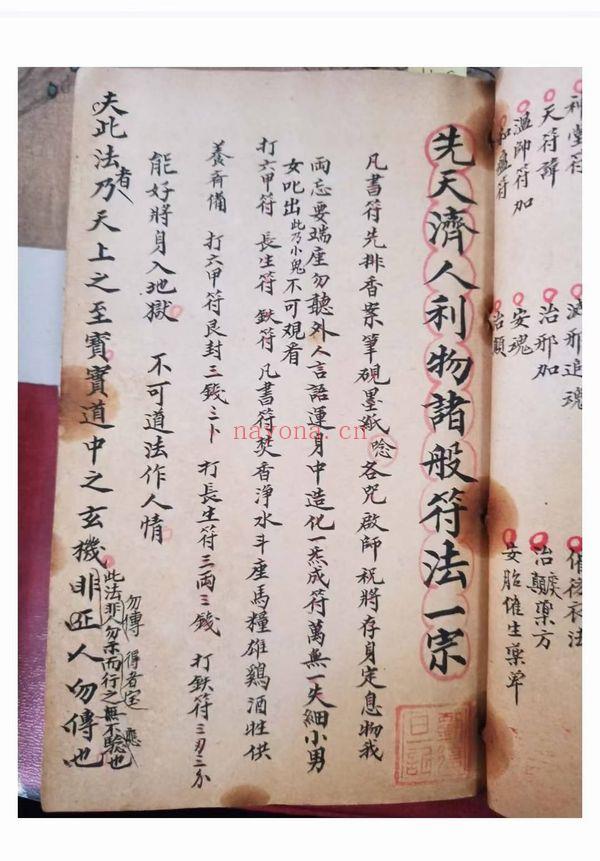 先天濟人利物諸般符法一宗
凡書符先排香案筆硯墨紙唸各咒啟師祝將存身定息物我
両忘要端座勿聽外人言語運身中造化一炁成符萬無一失細小男
女叱出此乃小鬼不可觀看
打六甲符 長生符 鉄符 凡書符焚香淨水斗座馬糧雄鷄酒牲供
養齊備 打六甲符艮封三錢三卜 打長生符三両三錢 打鉄符三刃三分
能好將身入地獄 不可道法作人情
夫此法者乃天上之至寶實道中之玄機非正人勿傳也
此法非人勿示而行之無不驗也
勿傳 得者宝 應
神堂符
天符諱
溫帥符加
和瘟符
滅邪追魂
治邪加
安魂
治顛
催衣法
治顛藥方
安胎催生藥单
日記
nayona.cn